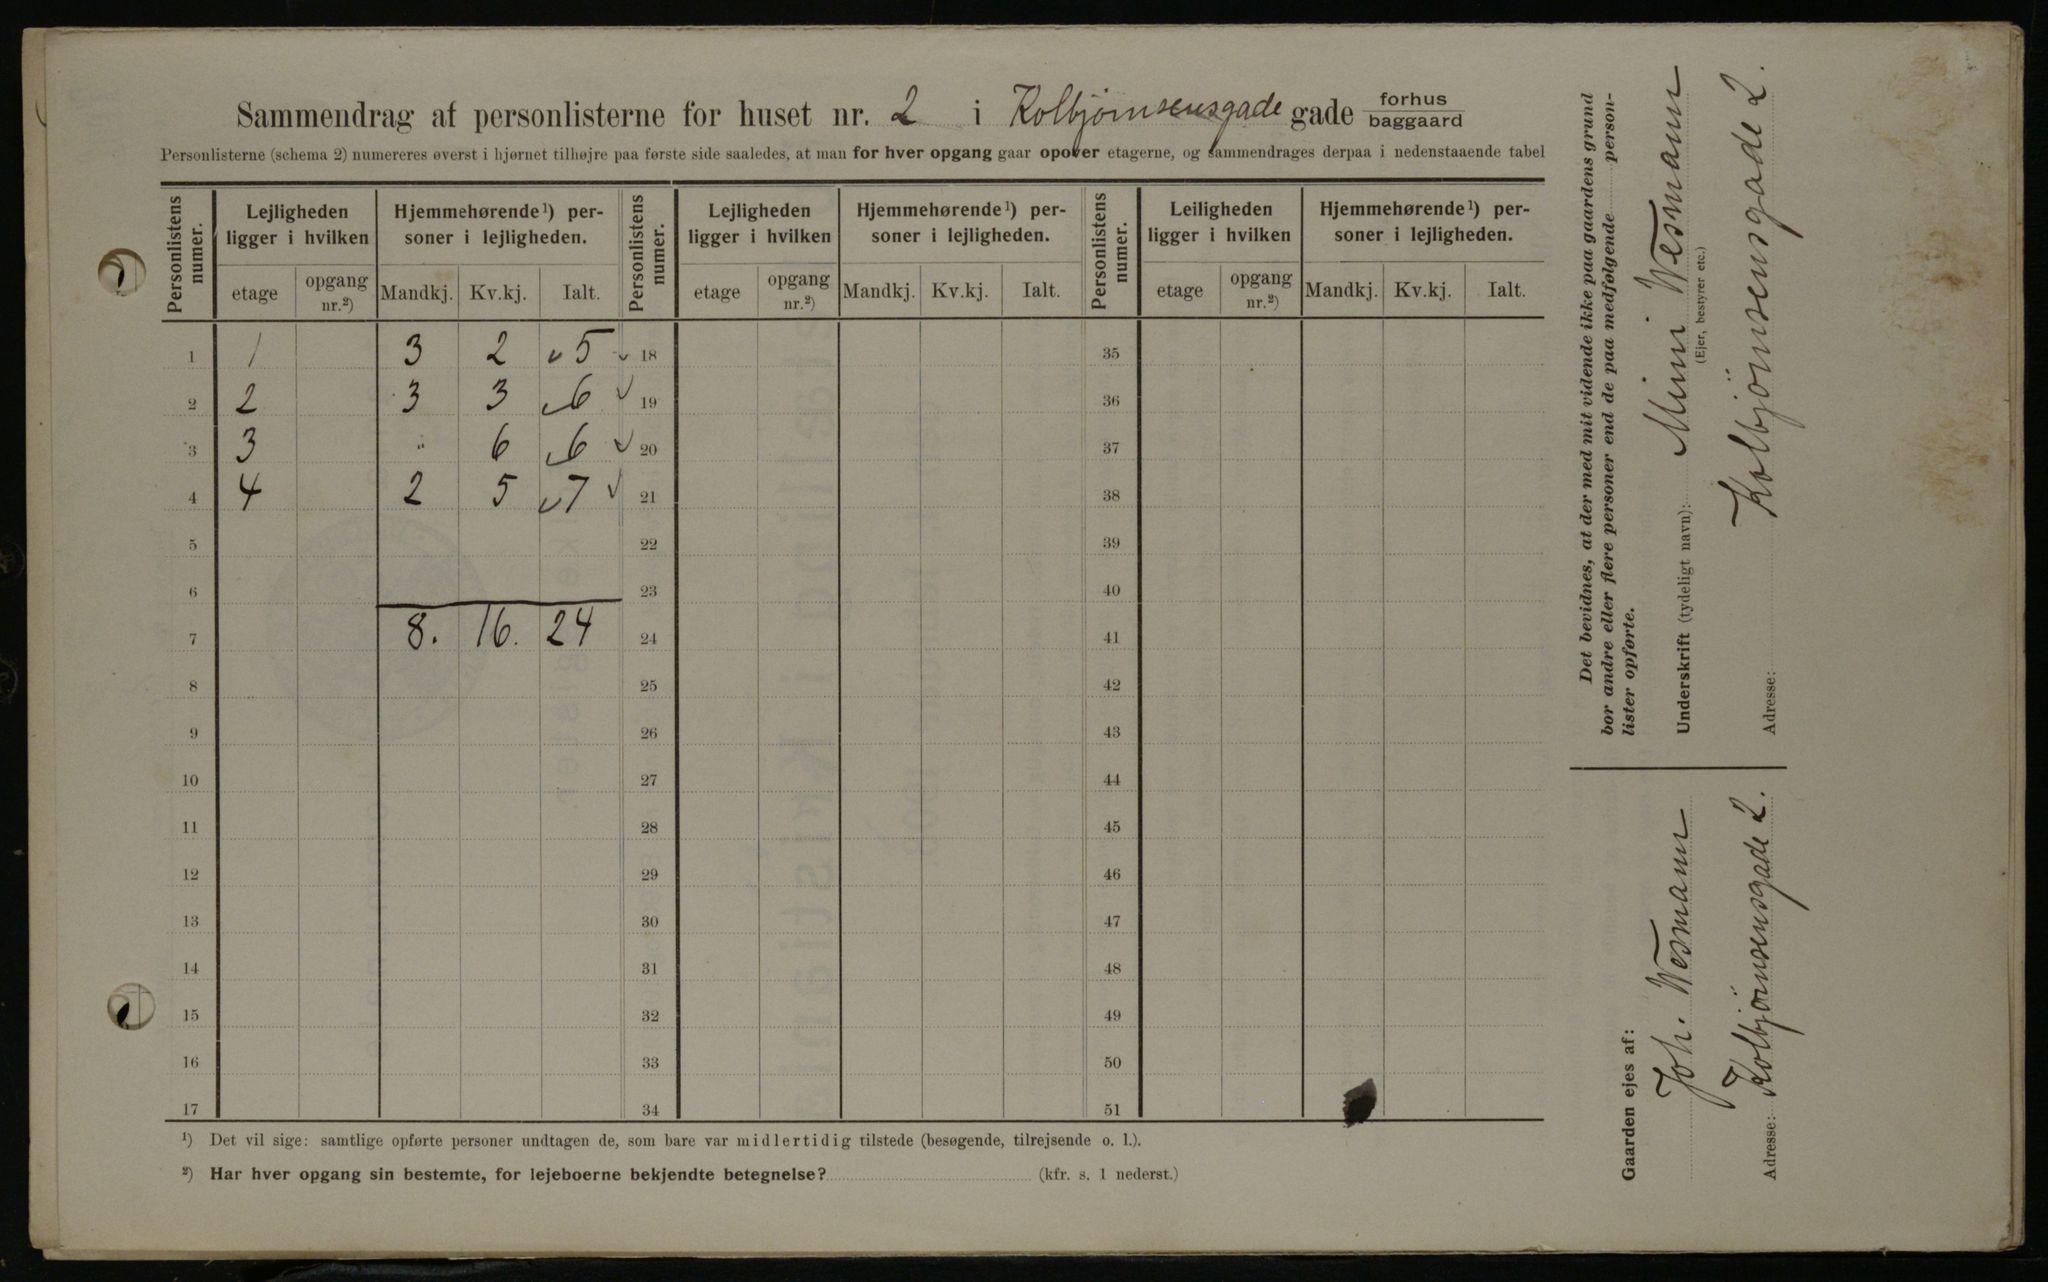 Sammendrag af personlisterne for huset nr. 2 i Kolbjørnsensgade gade forhus baggaard
Personlisterne (schema 2) numereres øverst i hjørnet tilhøjre paa første side saaledes, at man for hver opgang gaar opover etagerne, og sammendrages derpaa i nedenstaaende tabel
Personlistens numer. Lejligheden ligger i hvilken Hjemmehørende ¹) personer i lejligheden. Personlistens numer. Lejligheden ligger i hvilken Hjemmehørende ¹) personer i lejligheden. Personlistens numer. Leiligheden ligger i hvilken Hjemmehørende ¹) personer i lejligheden.
etage opgang nr.²) Mandkj. Kv.kj. Ialt. etage opgang nr.²) Mandkj. Kv.kj. Ialt. etage opgang nr.²) Mandkj. Kv.kj. Ialt.
1 1 3 2 5 18 35
2 2 3 3 6 19 36
3 3 " 6 6 20 37
4 4 2 5 7 21 38
5 22 39
6 23 40
7 8. 16. 24 24 41
8 25 42
9 26 43
10 27 44
11 28 45
12 29 46
13 30 47
14 31 48
15 32 49
16 33 50
17 34 51
¹) Det vil sige: samtlige opførte personer undtagen de, som bare var midlertidig tilstede (besøgende, tilrejsende o. l.).
²) Har hver opgang sin bestemte, for lejeboerne bekjendte betegnelse? (kfr. s. 1 nederst.)
Det bevidnes, at der med mit vidende ikke paa gaardens grund
bor andre eller flere personer end de paa medfølgende person-
lister opførte.
Underskrift (tydeligt navn): Mimi Wesmann
(Ejer, bestyrer etc.)
Adresse: Kolbjörnsensgade 2.
Gaarden ejes af:
Joh. Wesmann
Adresse: Kolbjörnsensgade 2.